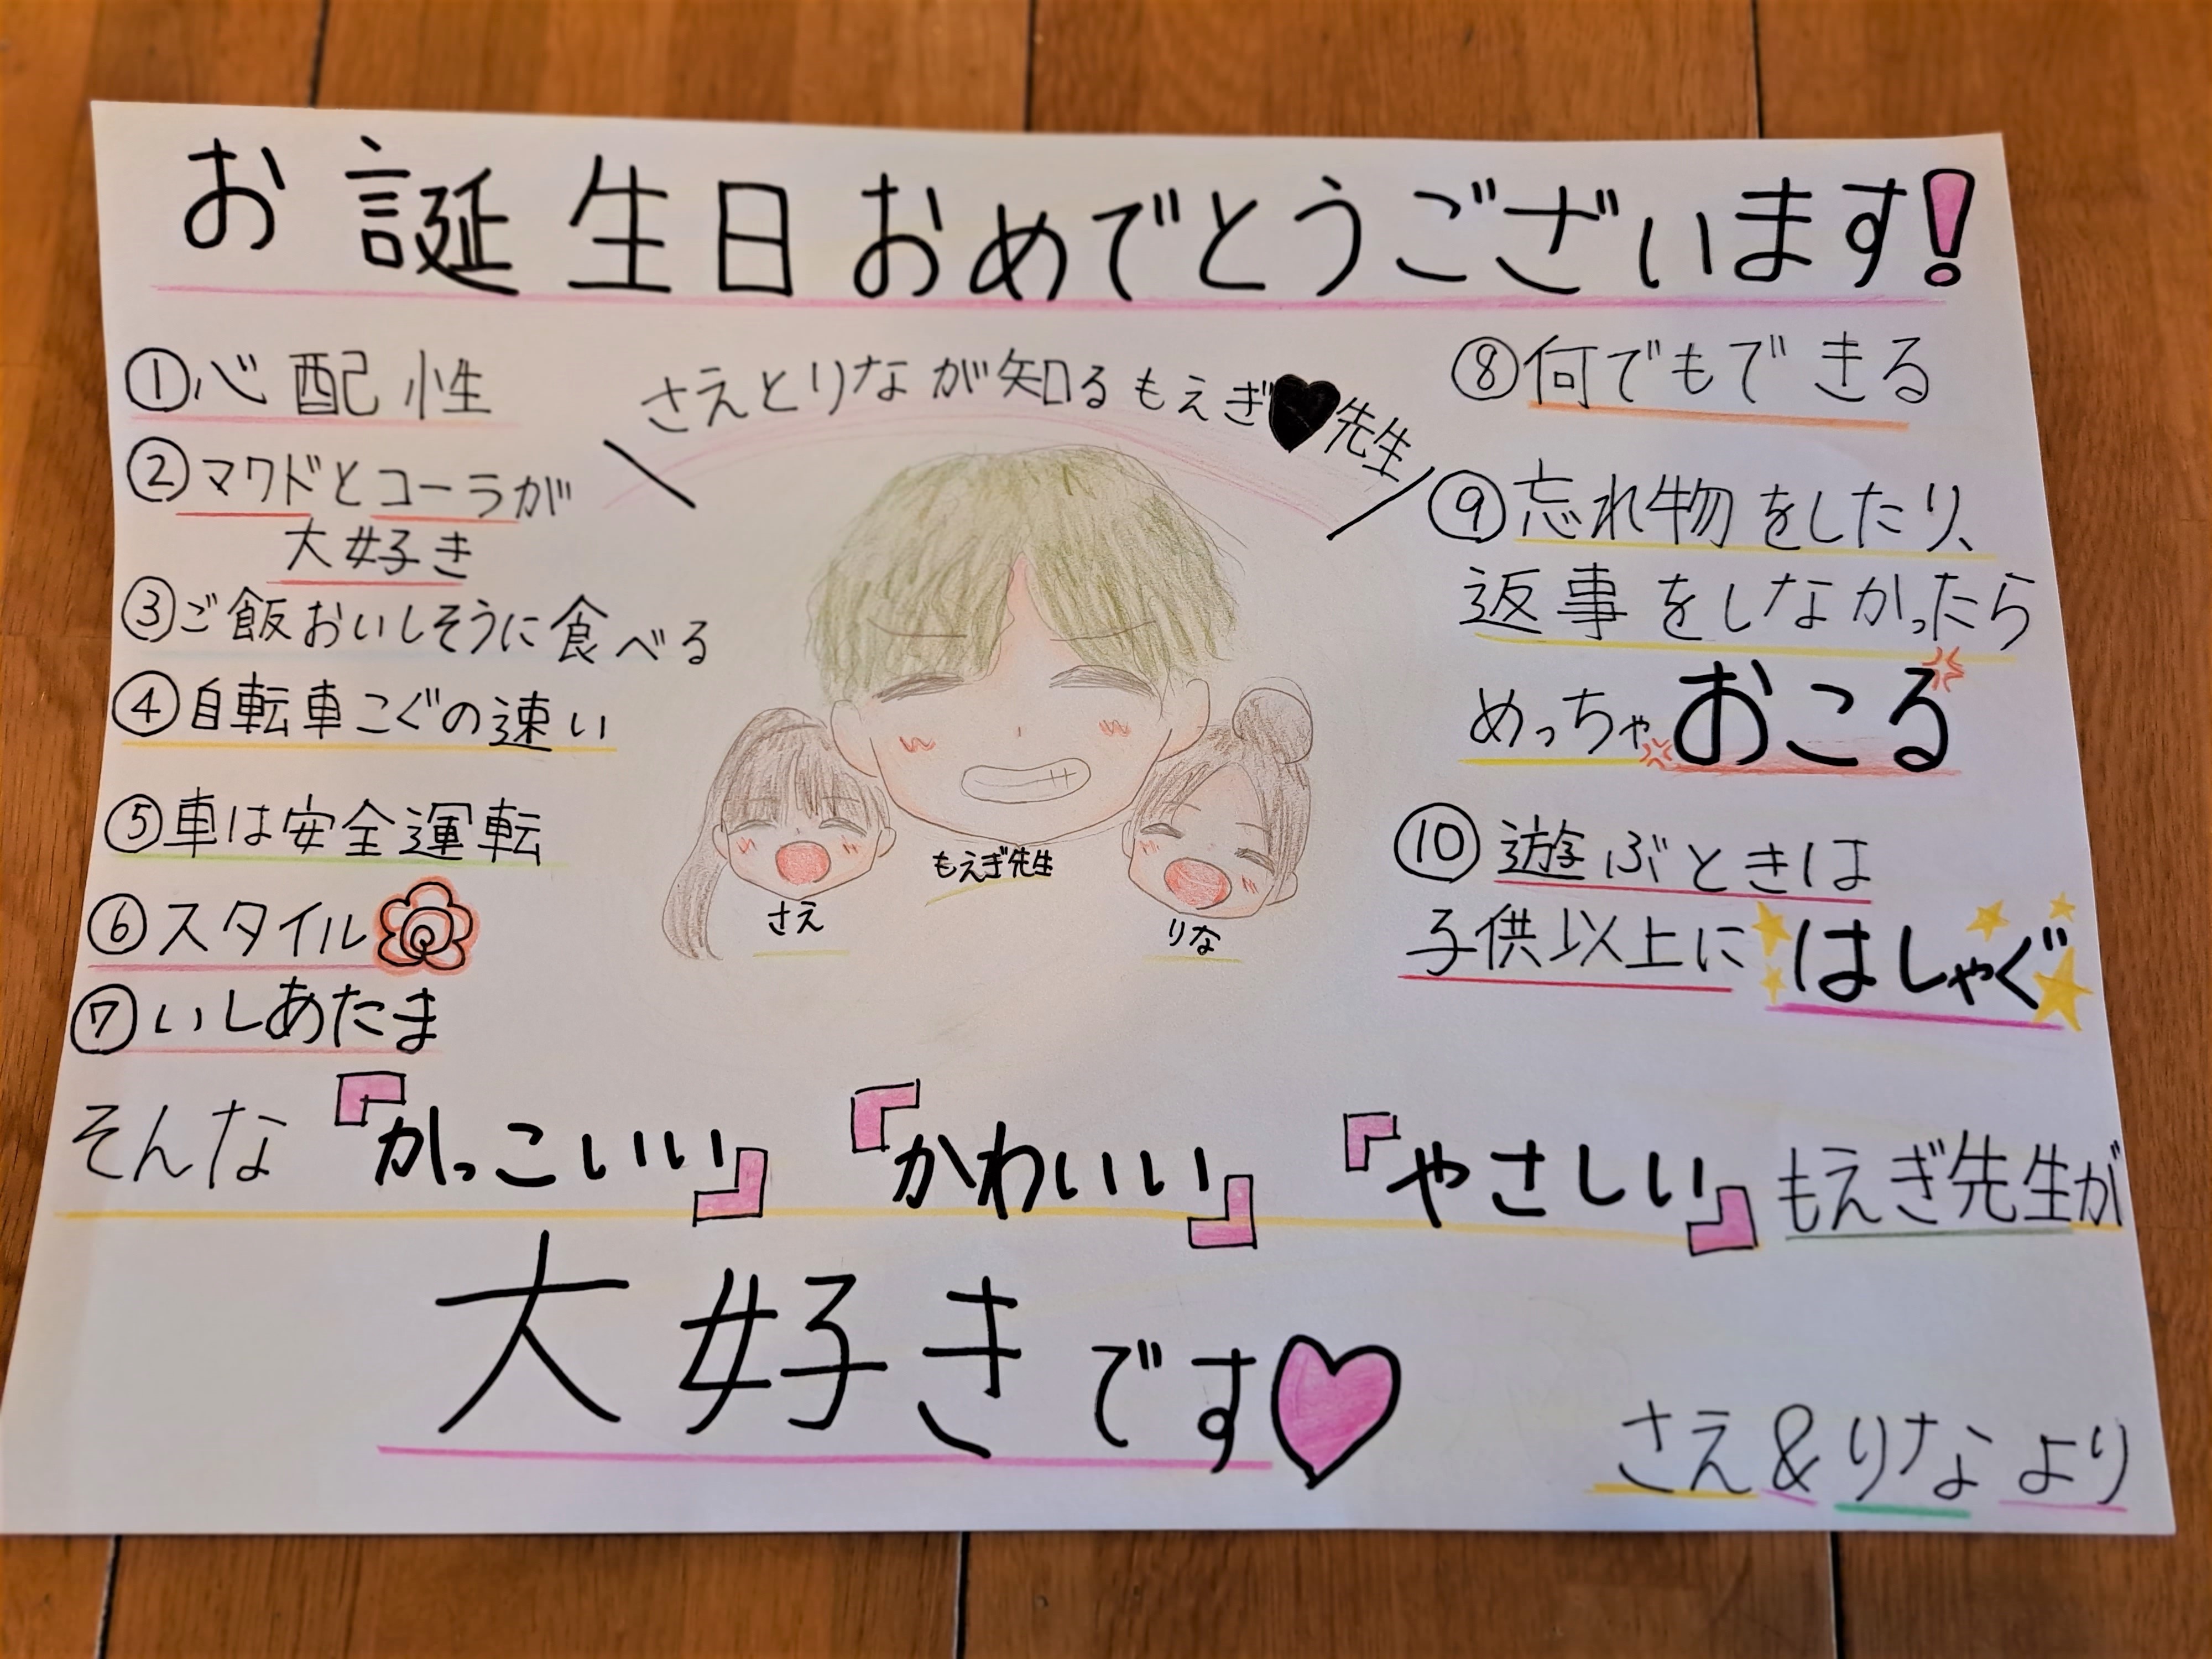 お誕生日おめでとうございます!
さえとりなが知るもえぎ♥先生
①心配性
②マクドとコーラが
大好き
③ご飯おいしそうに食べる
④自転車こぐの速い
⑤車は安全運転
⑥スタイル
⑦いしあたま
⑧何でもできる
⑨忘れ物をしたり、
返事をしなかったら
めっちゃおこる
⑩遊ぶときは
子供以上にはしゃぐ
もえぎ先生
さえ
りな
そんな『かっこいい』『かわいい』『やさしい』もえぎ先生が
大好きです♥
さえ&りなより